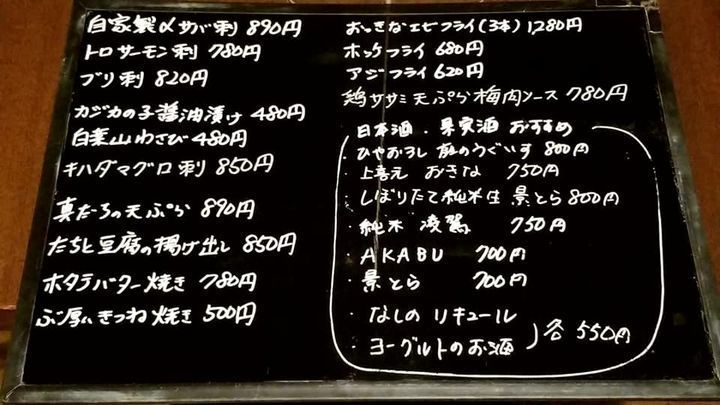 自家製〆サバ刺 890円
トロサーモン刺 780円
ブリ刺 820円
カジカの子醤油漬け 480円
白菜山わさび 480円
キハダマグロ刺 850円
真だちの天ぷら 890円
たちと豆腐の揚げ出し 850円
ホタテバター焼き 780円
ぶ厚いきつね焼き 500円
おっきなエビフライ(3本) 1280円
ホッケフライ 680円
アジフライ 620円
鶏ササミ天ぷら梅肉ソース 780円
日本酒・果実酒 おすすめ
・ひやおろし 庭のうぐいす 800円
・上喜元 おきな 750円
・しぼりたて純米生 景とら 800円
・純米 凌駕 750円
・AKABU 700円
・景とら 700円
・なしの リキュール
・ヨーグルトのお酒
各 550円